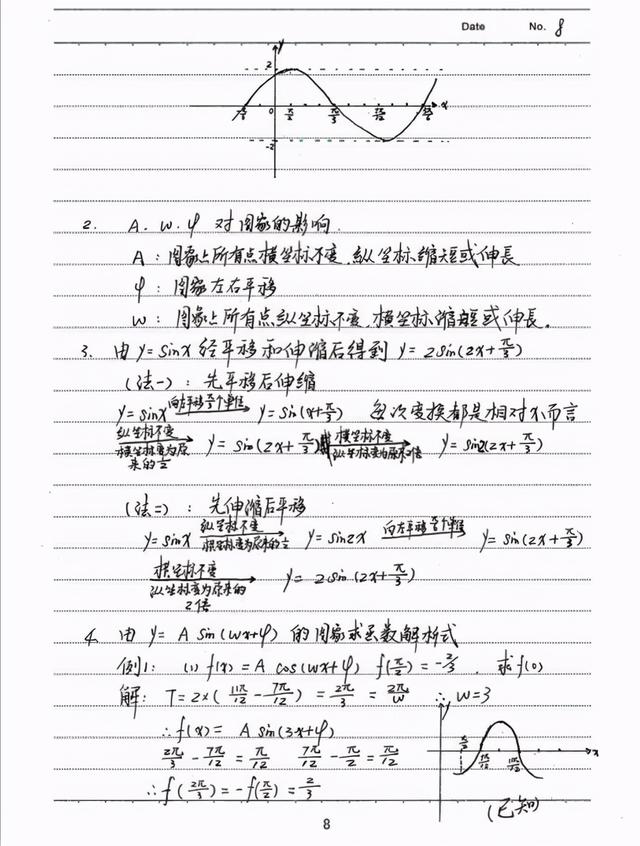 Date No. 8
y
2
-π/6 0 π/2 π/3 7π/12 5π/6 x
-2
2. A. w. φ 对图象的影响.
A: 图象上所有点横坐标不变.纵坐标缩短或伸長
φ: 图象左右平移
w: 图象上所有点纵坐标不变,横坐标缩短或伸長.
3. 由y=sinx经平移和伸缩后得到 y=2sin(2x+π/3)
(法一): 先平移后伸缩
y=sinx 向左平移π/3个单位 y=sin(x+π/3) 每次变换都是相对x而言
纵坐标不变 横坐标变为原来的1/2 y=sin(2x+π/3) 横坐标不变 纵坐标变为原来2倍 y=sin2(2x+π/3)
(法二): 先伸缩后平移
y=sinx 纵坐标不变 横坐标变为原来的1/2 y=sin2x 向左平移π/6个单位 y=sin(2x+π/3)
横坐标不变 纵坐标变为原来的2倍 y=2sin(2x+π/3)
4. 由y=Asin(wx+φ)的图象求函数解析式
例1: (1) f(x)=A cos(wx+φ) f(π/2)=-2/3. 求f(0)
解: T=2×(11π/12-7π/12)=2π/3=2π/w ∴w=3
∴f(x)=A sin(3x+φ)
2π/3-7π/12=π/12 7π/12-π/2=π/12
∴f(2π/3)=-f(π/2)=2/3
y
π/2 7π/12 11π/12 x
(已知)
8